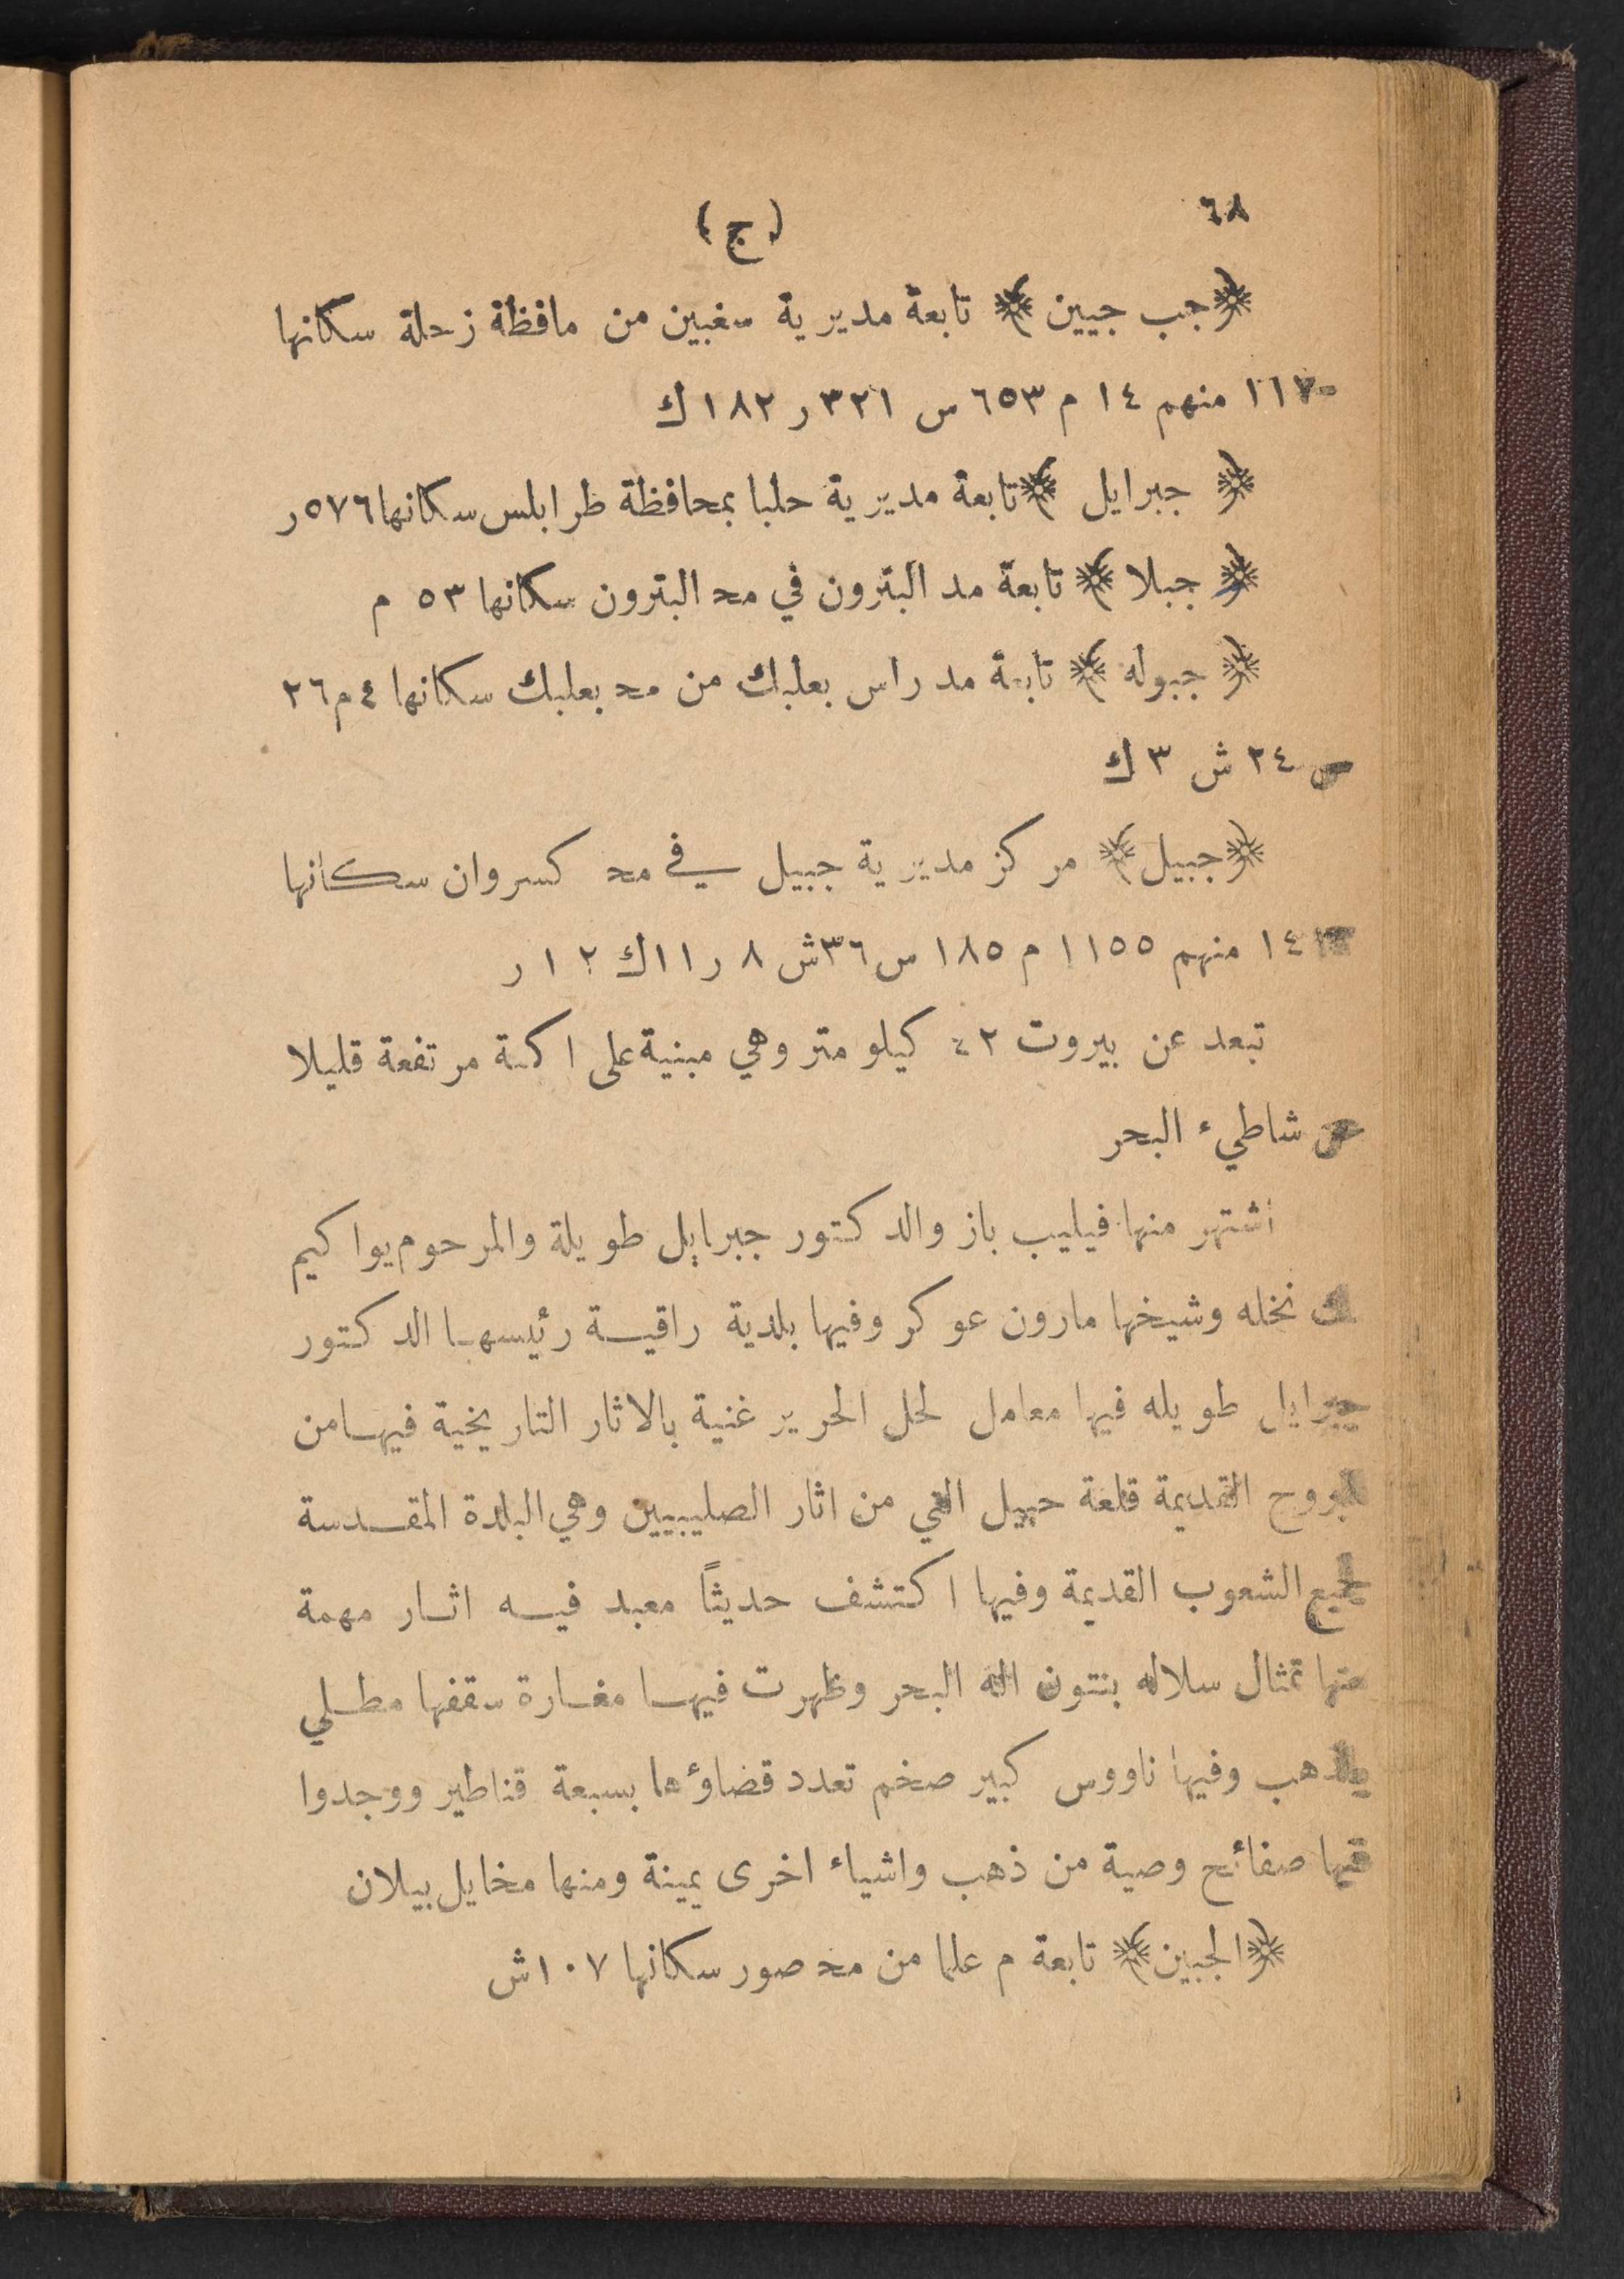 ٦٨
(ج)
﴿جب جبين﴾ تابعة مديرية سغبين من مافظة زحلة سكانها
١١٧٠ منهم ١٤ م ٦٥٣ س ٣٢١ ر ١٨٢ ك
﴿ جبرايل ﴾ تابعة مديرية حلبا بمحافظة طرابلس سكانها ٥٧٦ ر
﴿ جبلا ﴾ تابعة مد البترون في محـ البترون سكانها ٥٣ م
﴿ جبوله ﴾ تابعة مد راس بعلبك من محـ بعلبك سكانها ٤ م ٢٦
س ٢٤ ش ٣ ك
﴿جبيل﴾ مركز مديرية جبيل في محـ كسروان سكانها
منهم ١١٥٥ م ١٨٥ س ٣٦ ش ٨ ر ١١ ك ١٢ ر
تبعد عن بيروت ٤٢ كيلو متر وهي مبنية على اكمة مرتفعة قليلا
عن شاطيء البحر
اشتهر منها فيليب باز والدكتور جبرايل طويلة والمرحوم يواكيم
بك نخله وشيخها مارون عوكر وفيها بلدية راقية رئيسها الدكتور
جبرايل طويله فيها معامل لحل الحرير غنية بالاثار التاريخية فيها من
البروج القديمة قلعة جبيل التي من اثار الصليبيين وهي البلدة المقدسة
لجميع الشعوب القديمة وفيها اكتشف حديثاً معبد فيه اثار مهمة
منها تمثال سلاله بنتون اله البحر وظهرت فيها مغارة سقفها مطلي
بالذهب وفيها ناووس كبير صخم تعدد قضاؤها بسبعة قناطير ووجدوا
فيها صفائح وصية من ذهب واشياء اخرى يمينة ومنها مخايل بيلان
﴿الجبين﴾ تابعة م علما من محـ صور سكانها ١٠٧ ش